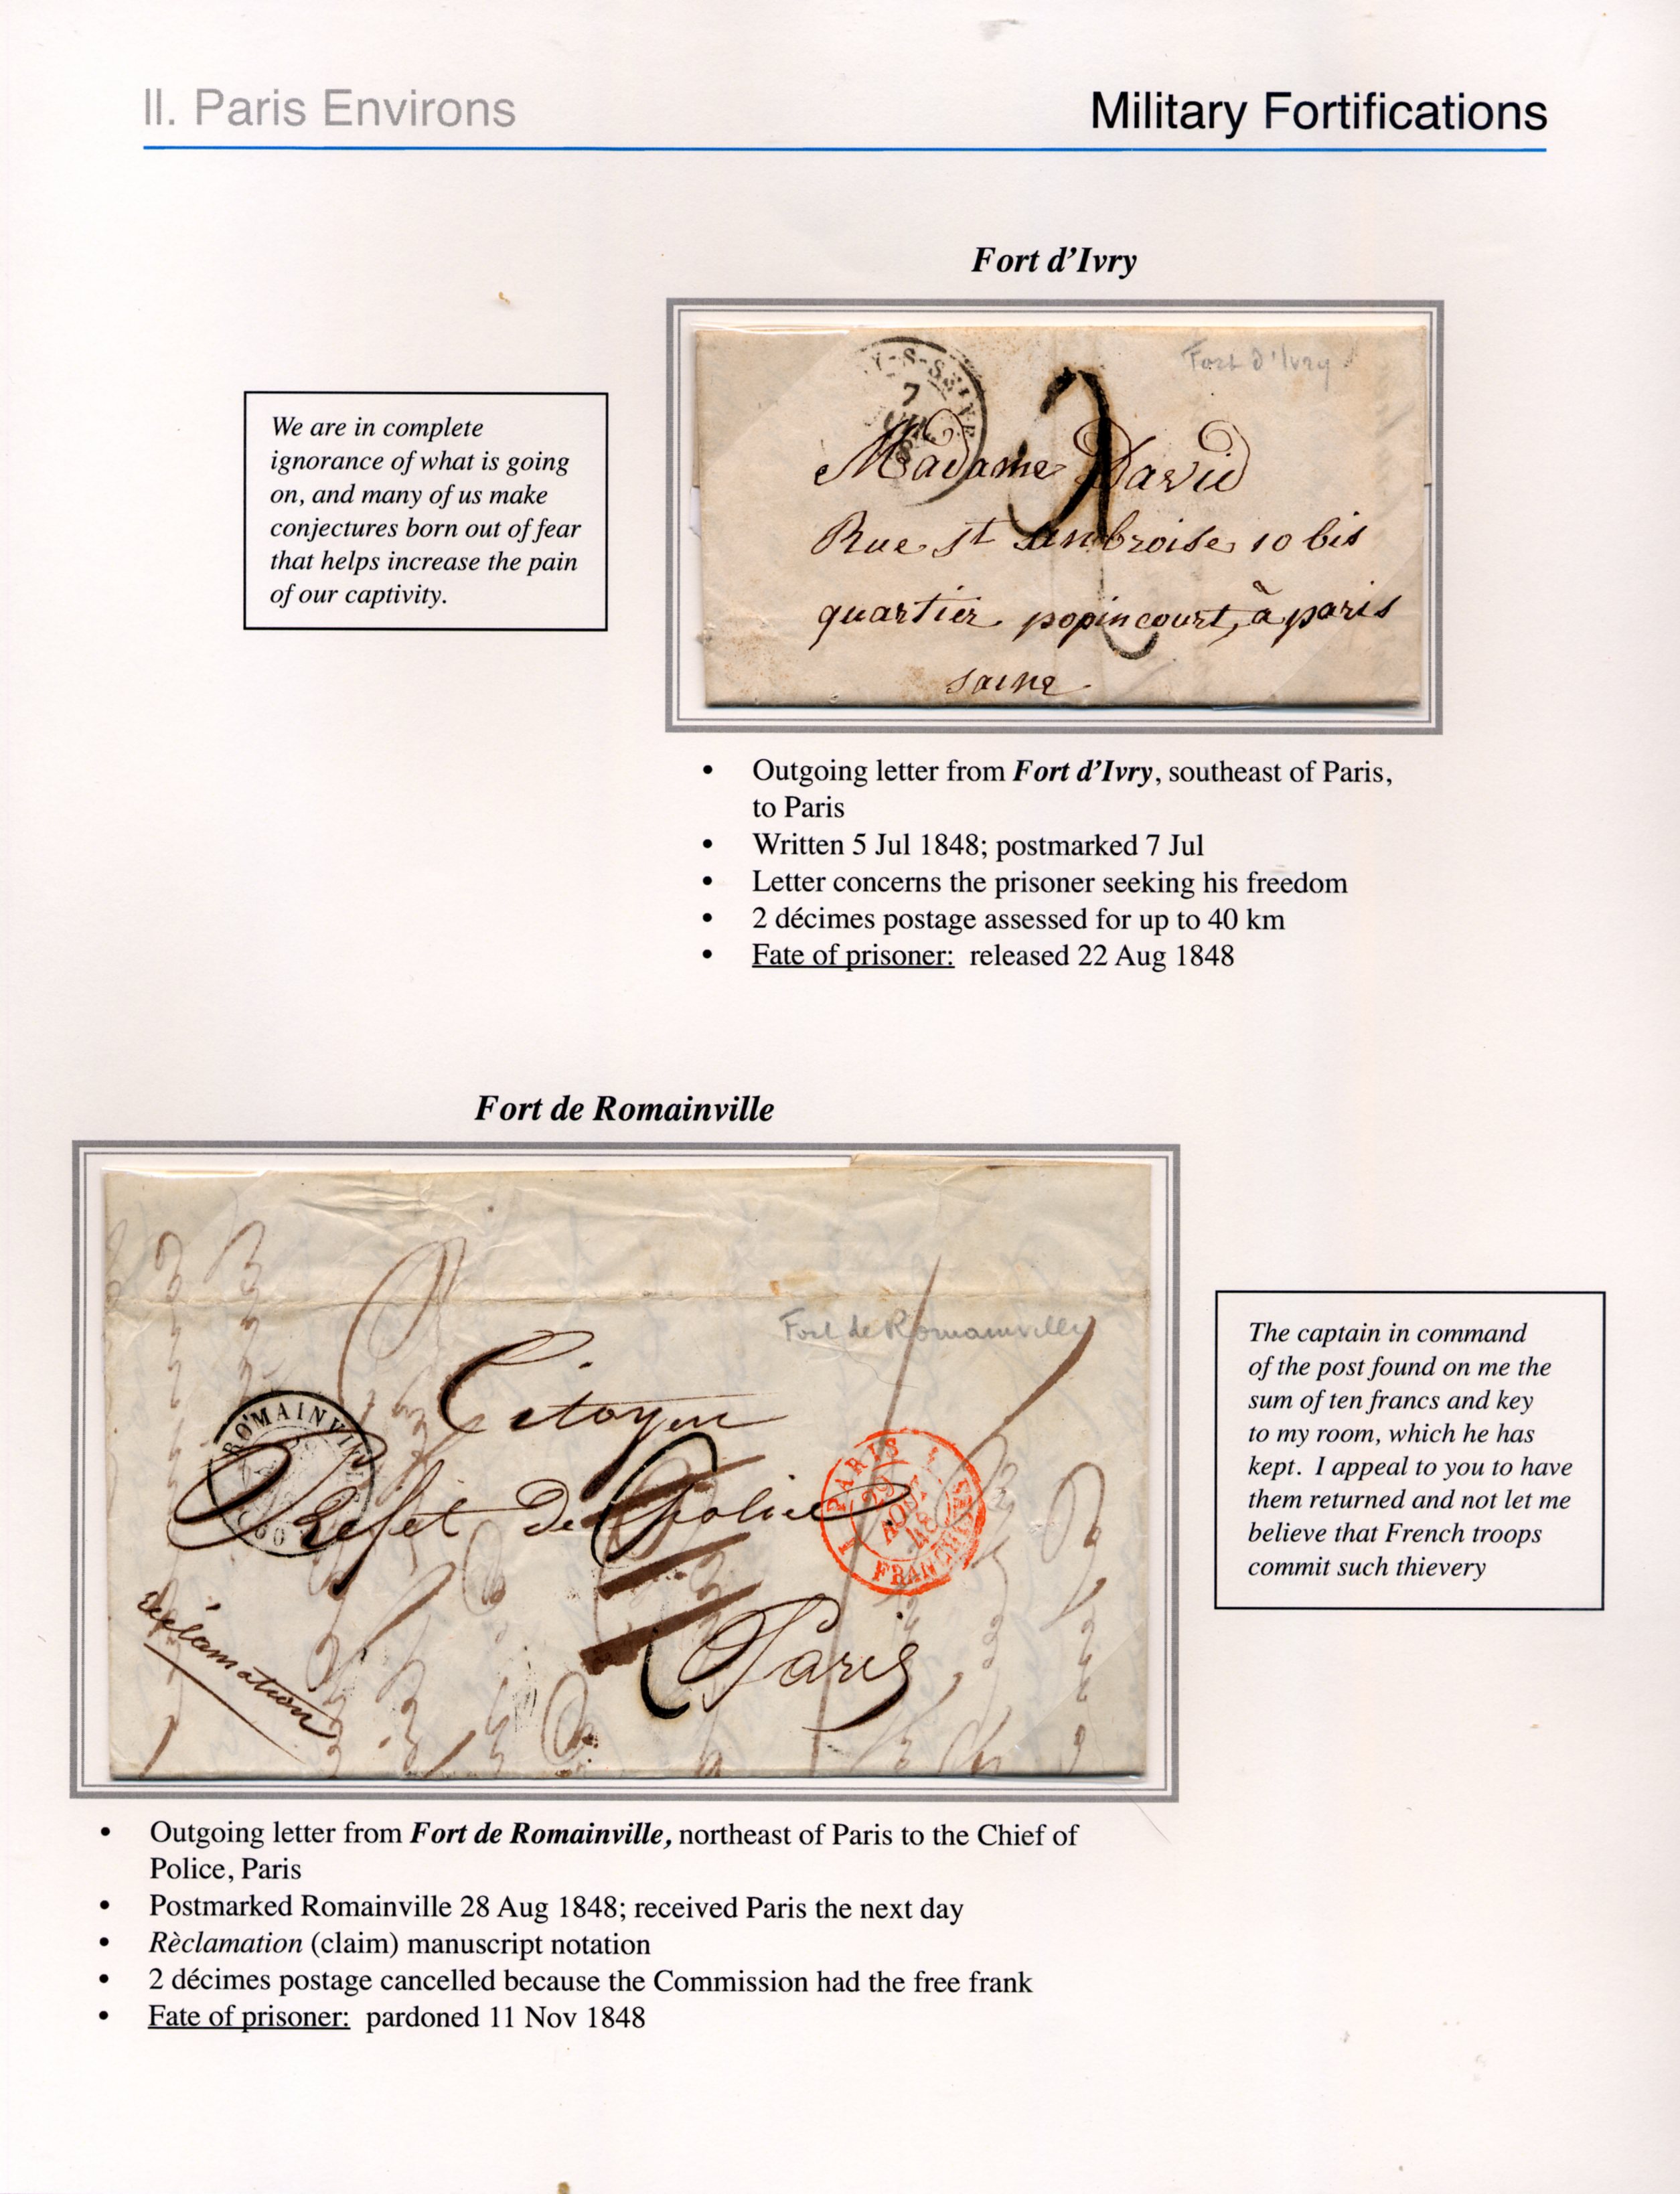 II. Paris Environs
Military Fortifications
Fort d'Ivry
We are in complete
ignorance of what is going
on, and many of us make
conjectures born out of fear
that helps increase the pain
of our captivity.
Fort d'Ivry
Y-S-SEINE
7
2
Madame David
Rue st ambroise 10 bis
quartier popincourt, à paris
saine
• Outgoing letter from Fort d'Ivry, southeast of Paris,
to Paris
• Written 5 Jul 1848; postmarked 7 Jul
• Letter concerns the prisoner seeking his freedom
• 2 décimes postage assessed for up to 40 km
• Fate of prisoner: released 22 Aug 1848
Fort de Romainville
Fort de Romainville
Citoyen
ROMAINVILLE
Préfet de police
PARIS
29
AOUT
48
FRANCHISES
Paris
réclamation
The captain in command
of the post found on me the
sum of ten francs and key
to my room, which he has
kept. I appeal to you to have
them returned and not let me
believe that French troops
commit such thievery
• Outgoing letter from Fort de Romainville, northeast of Paris to the Chief of
Police, Paris
• Postmarked Romainville 28 Aug 1848; received Paris the next day
• Rèclamation (claim) manuscript notation
• 2 décimes postage cancelled because the Commission had the free frank
• Fate of prisoner: pardoned 11 Nov 1848